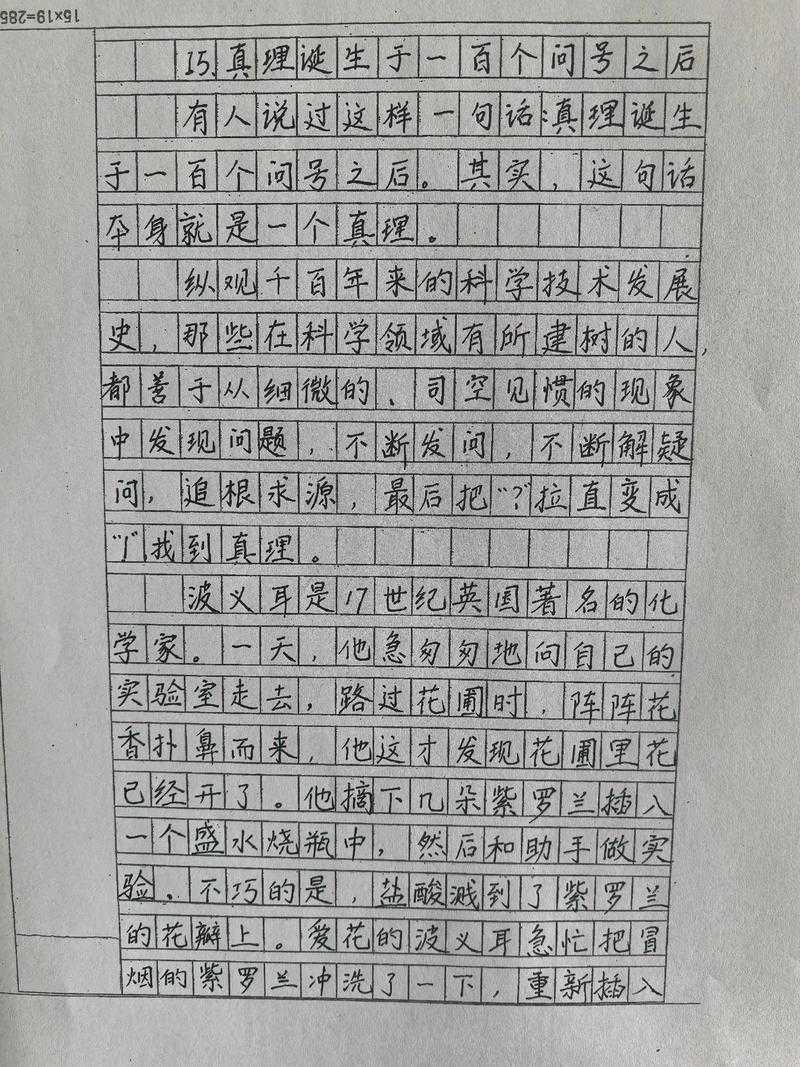 15×19=285
15.真理诞生于一百个问号之后
有人说过这样一句话:真理诞生
于一百个问号之后。其实,这句话
本身就是一个真理。
纵观千百年来的科学技术发展
史,那些在科学领域有所建树的人,
都善于从细微的、司空见惯的现象
中发现问题,不断发问,不断解疑
问,追根求源,最后把“?”拉直变成
“!”找到真理。
波义耳是17世纪英国著名的化
学家。一天,他急匆匆地向自己的
实验室走去,路过花圃时,阵阵花
香扑鼻而来,他这才发现花圃里花
已经开了。他摘下几朵紫罗兰插入
一个盛水烧瓶中,然后和助手做实
验。不巧的是,盐酸溅到了紫罗兰
的花瓣上。爱花的波义耳急忙把冒
烟的紫罗兰冲洗了一下,重新插入